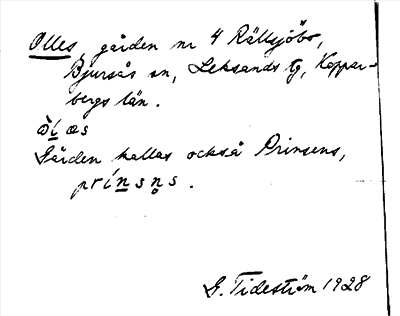 Olles gården nr 4 Rällsjöbo,
Bjursås sn, Leksands tg, Koppar-
bergs län.
Gården kallas också Prinsens,
prínsn̥s.
G. Tideström 1928